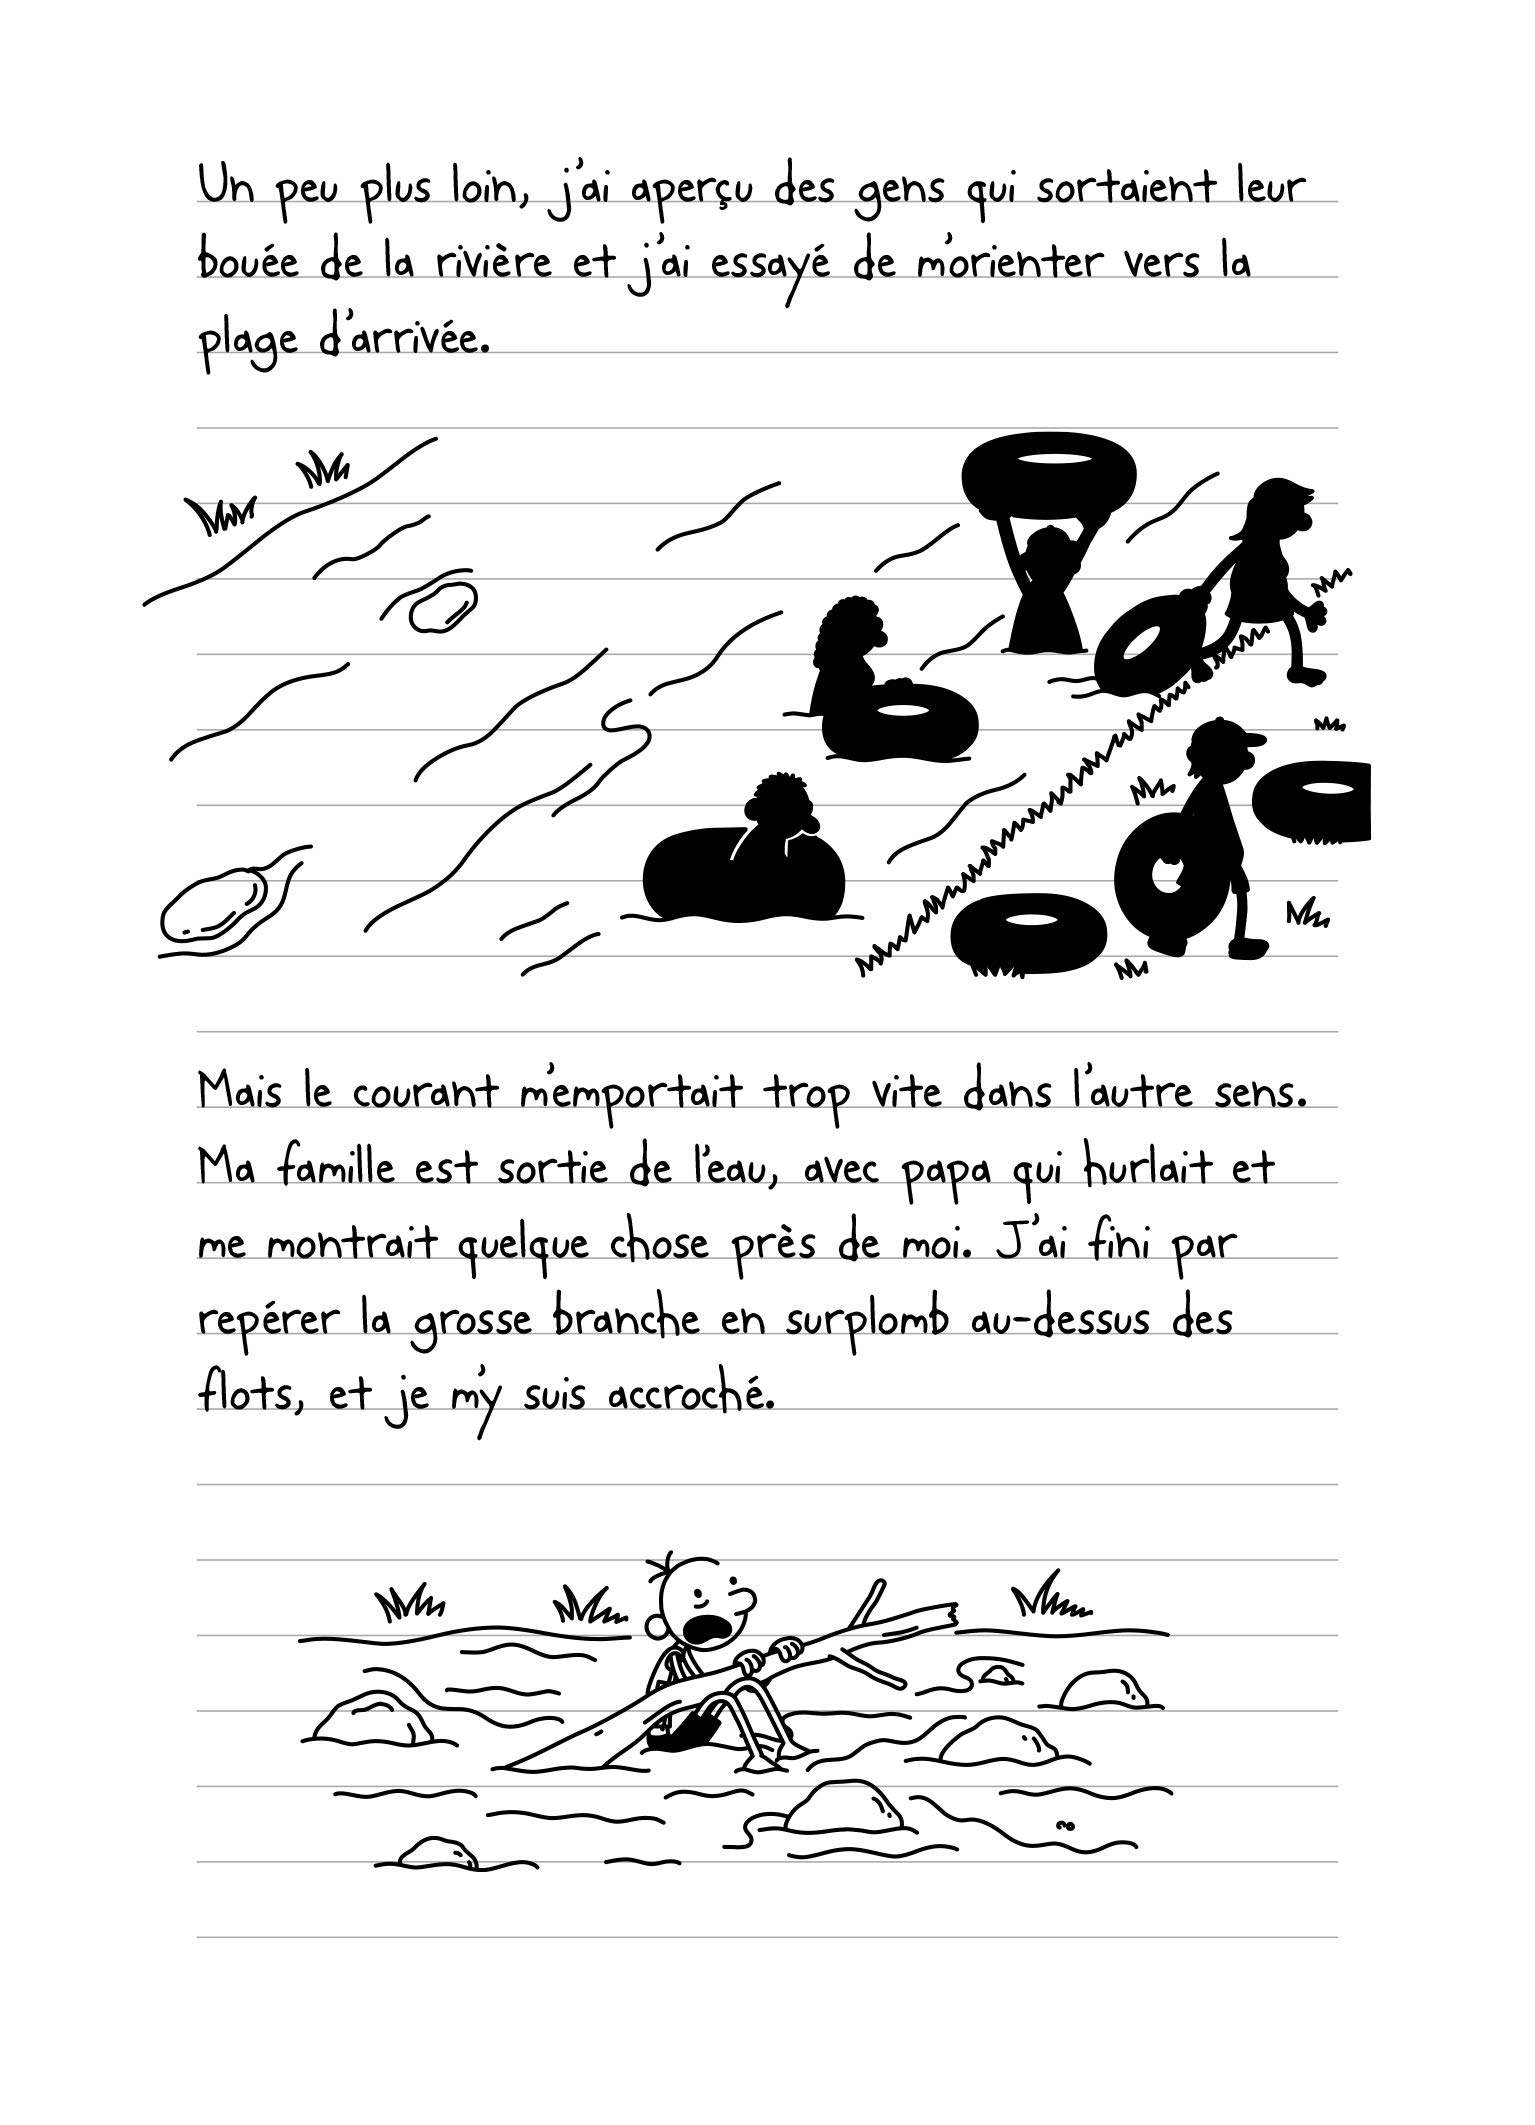 Un peu plus loin, j'ai aperçu des gens qui sortaient leur
bouée de la rivière et j'ai essayé de m'orienter vers la
plage d'arrivée.
Mais le courant m'emportait trop vite dans l'autre sens.
Ma famille est sortie de l'eau, avec papa qui hurlait et
me montrait quelque chose près de moi. J'ai fini par
repérer la grosse branche en surplomb au-dessus des
flots, et je m'y suis accroché.